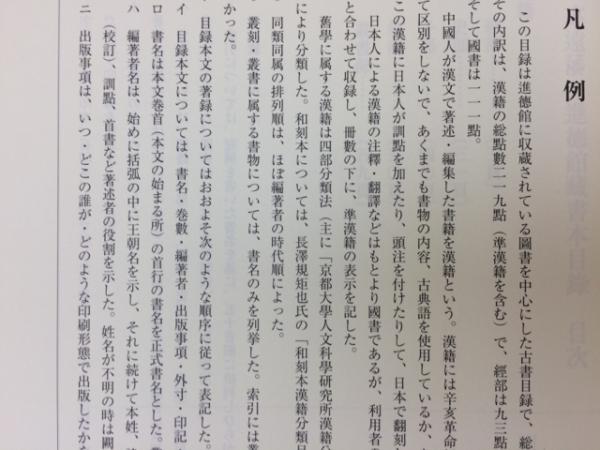 凡例
この目録は進德館に収蔵されている圖書を中心にした古書目録で、総
その内訳は、漢籍の総點數二一九點（準漢籍を含む）で、經部は九三點
そして國書は一一一點。
中國人が漢文で著述・編集した書籍を漢籍という。漢籍には辛亥革命
て区別をしないで、あくまでも書物の内容、古典語を使用しているか、
この漢籍に日本人が訓點を加えたり、頭注を付けたりして、日本で翻刻
日本人による漢籍の注釋・翻譯などはもとより國書であるが、利用者
と合わせて収録し、冊數の下に、準漢籍の表示を記した。
舊學に属する漢籍は四部分類法（主に「京都大學人文科學研究所漢籍分
により分類した。和刻本については、長澤規矩也氏の「和刻本漢籍分類目
同類同属の排列順は、ほぼ編著者の時代順によった。
叢刻・叢書に属する書物については、書名のみを列挙した。索引には叢
かった。
目録本文の著録についてはおおよそ次のような順序に従って表記した。
イ 目録本文については、書名・巻數・編著者・出版事項・外寸・印記
ロ 書名は本文巻首（本文の始まる所）の首行の書名を正式書名とした。
ハ 編著者名は、始めに括弧の中に王朝名を示し、それに続けて本姓、
（校訂）、訓點、首書など著述者の役割を示した。姓名が不明の時は闕
ニ 出版事項は、いつ・どこの誰が・どのような印刷形態で出版したかな